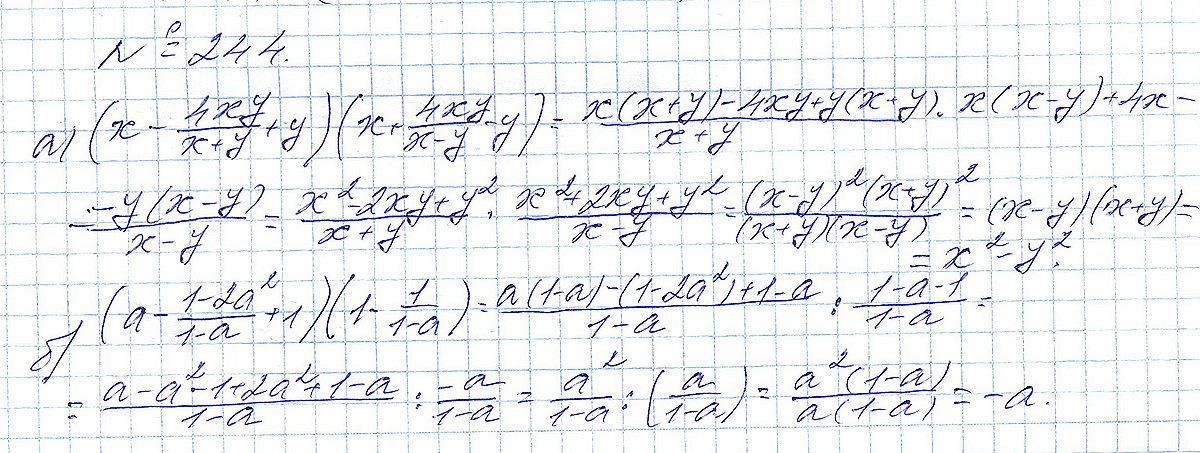 № 244.
а) (x - 4xy/(x+y) + y)(x + 4xy/(x-y) - y) = (x(x+y) - 4xy + y(x+y))/(x+y) · x(x-y) + 4x -
- y(x-y)/(x-y) = (x² - 2xy + y²)/(x+y) · (x² + 2xy + y²)/(x-y) = (x-y)²(x+y)²/((x+y)(x-y)) = (x-y)(x+y) =
= x² - y².
б) (a - (1-2a²)/(1-a) + 1)(1 - 1/(1-a)) = (a(1-a) - (1-2a²) + 1-a)/(1-a) : (1-a-1)/(1-a) =
= (a - a² - 1 + 2a² + 1 - a)/(1-a) : -a/(1-a) = a²/(1-a) : (a/(1-a)) = a²(1-a)/(a(1-a)) = -a.